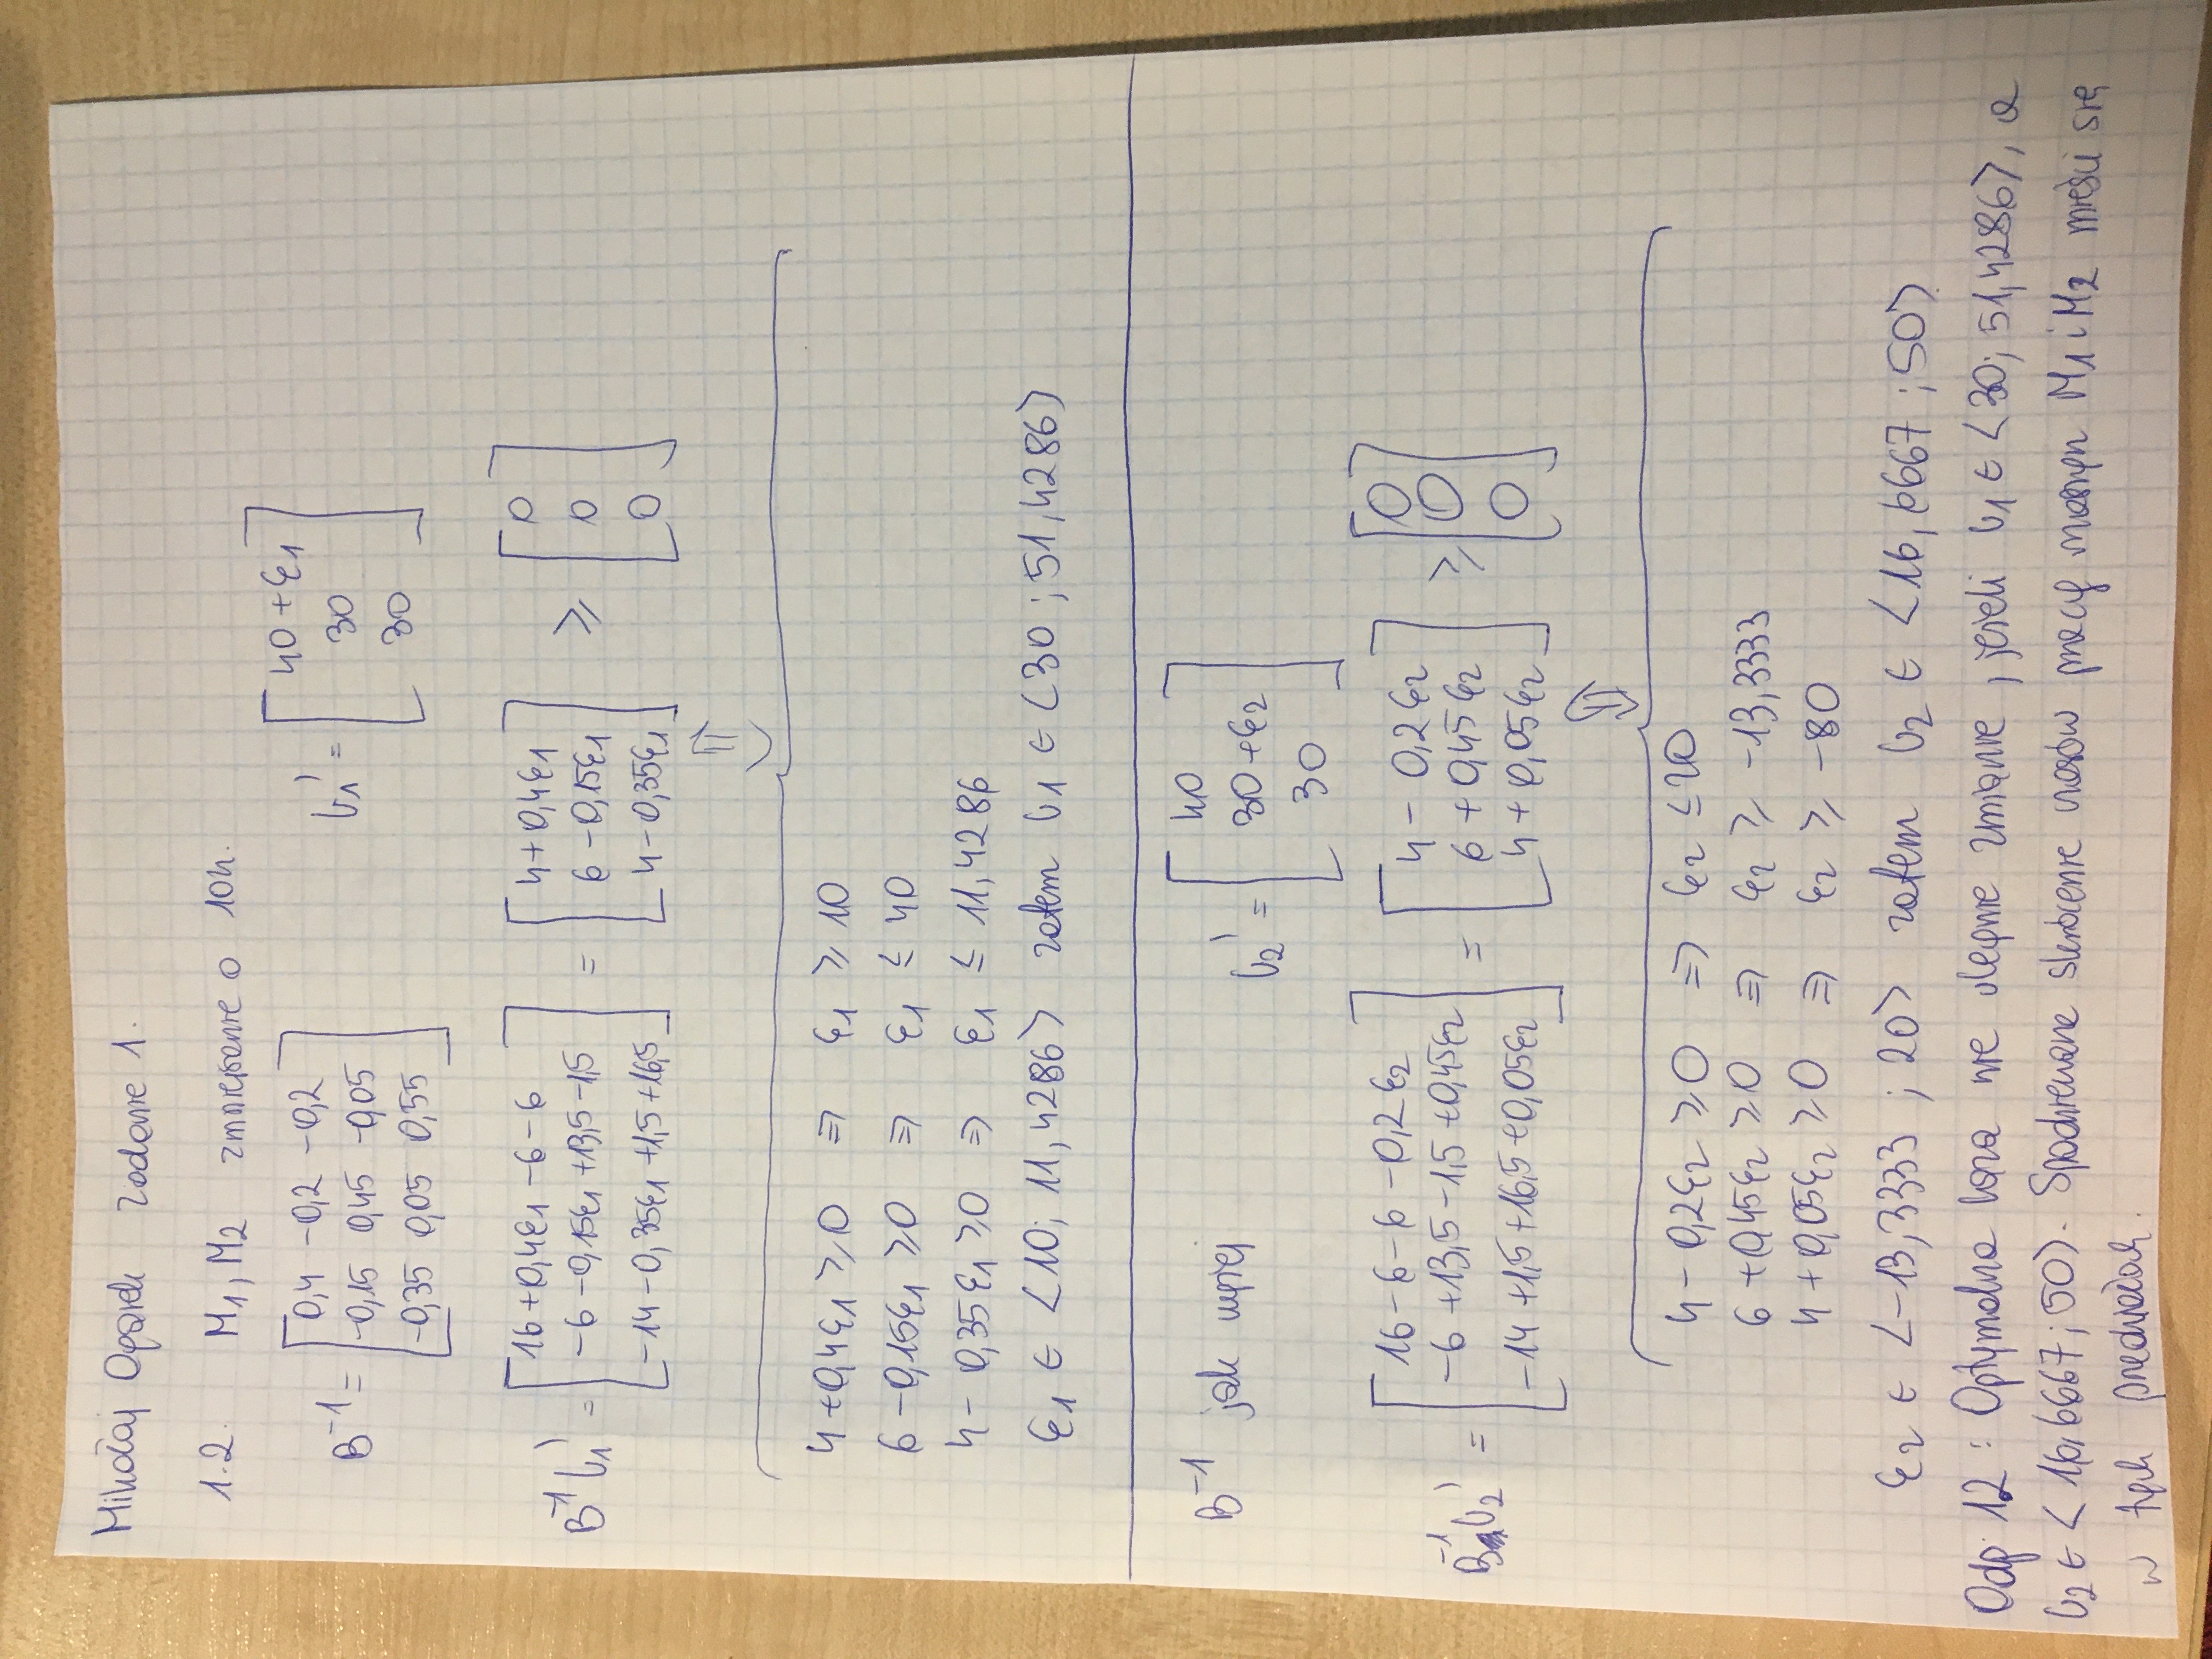 Mikołaj Ogarek zadanie 1.
1.2. M1, M2 zmniejszenie o 10h.
B⁻¹ = [ 0,4 -0,2 -0,2 b1' = [ 40+ε1
-0,15 0,45 -0,05 30
-0,35 0,05 0,55 ] 30 ]
B⁻¹b1' = [ 16+0,4ε1-6-6 = [ 4+0,4ε1 ≥ [ 0
-6-0,15ε1+13,5-1,5 6-0,15ε1 0
-14-0,35ε1+1,5+16,5 ] 4-0,35ε1 ] 0 ]
⇓
4+0,4ε1 ≥ 0 ⇒ ε1 ≥ 10
6-0,15ε1 ≥ 0 ⇒ ε1 ≤ 40
4-0,35ε1 ≥ 0 ⇒ ε1 ≤ 11,4286
ε1 ∈ <10; 11,4286> zatem b1 ∈ <30; 51,4286>
B⁻¹ jak wyżej b2' = [ 40
30+ε2
30 ]
B⁻¹b2' = [ 16-6-6-0,2ε2 = [ 4-0,2ε2 ≥ [ 0
-6+13,5-1,5+0,45ε2 6+0,45ε2 0
-14+1,5+16,5+0,05ε2 ] 4+0,05ε2 ] 0 ]
⇓
4-0,2ε2 ≥ 0 ⇒ ε2 ≤ 20
6+0,45ε2 ≥ 0 ⇒ ε2 ≥ -13,3333
4+0,05ε2 ≥ 0 ⇒ ε2 ≥ -80
ε2 ∈ <-13,3333; 20> zatem b2 ∈ <16,6667; 50>
Odp. 12: Optymalna baza nie ulegnie zmianie, jeżeli b1 ∈ <30; 51,4286>, a
b2 ∈ <16,6667; 50>. Spodziewane skrócenie czasów pracy maszyn M1 i M2 mieści się
w tych przedziałach.